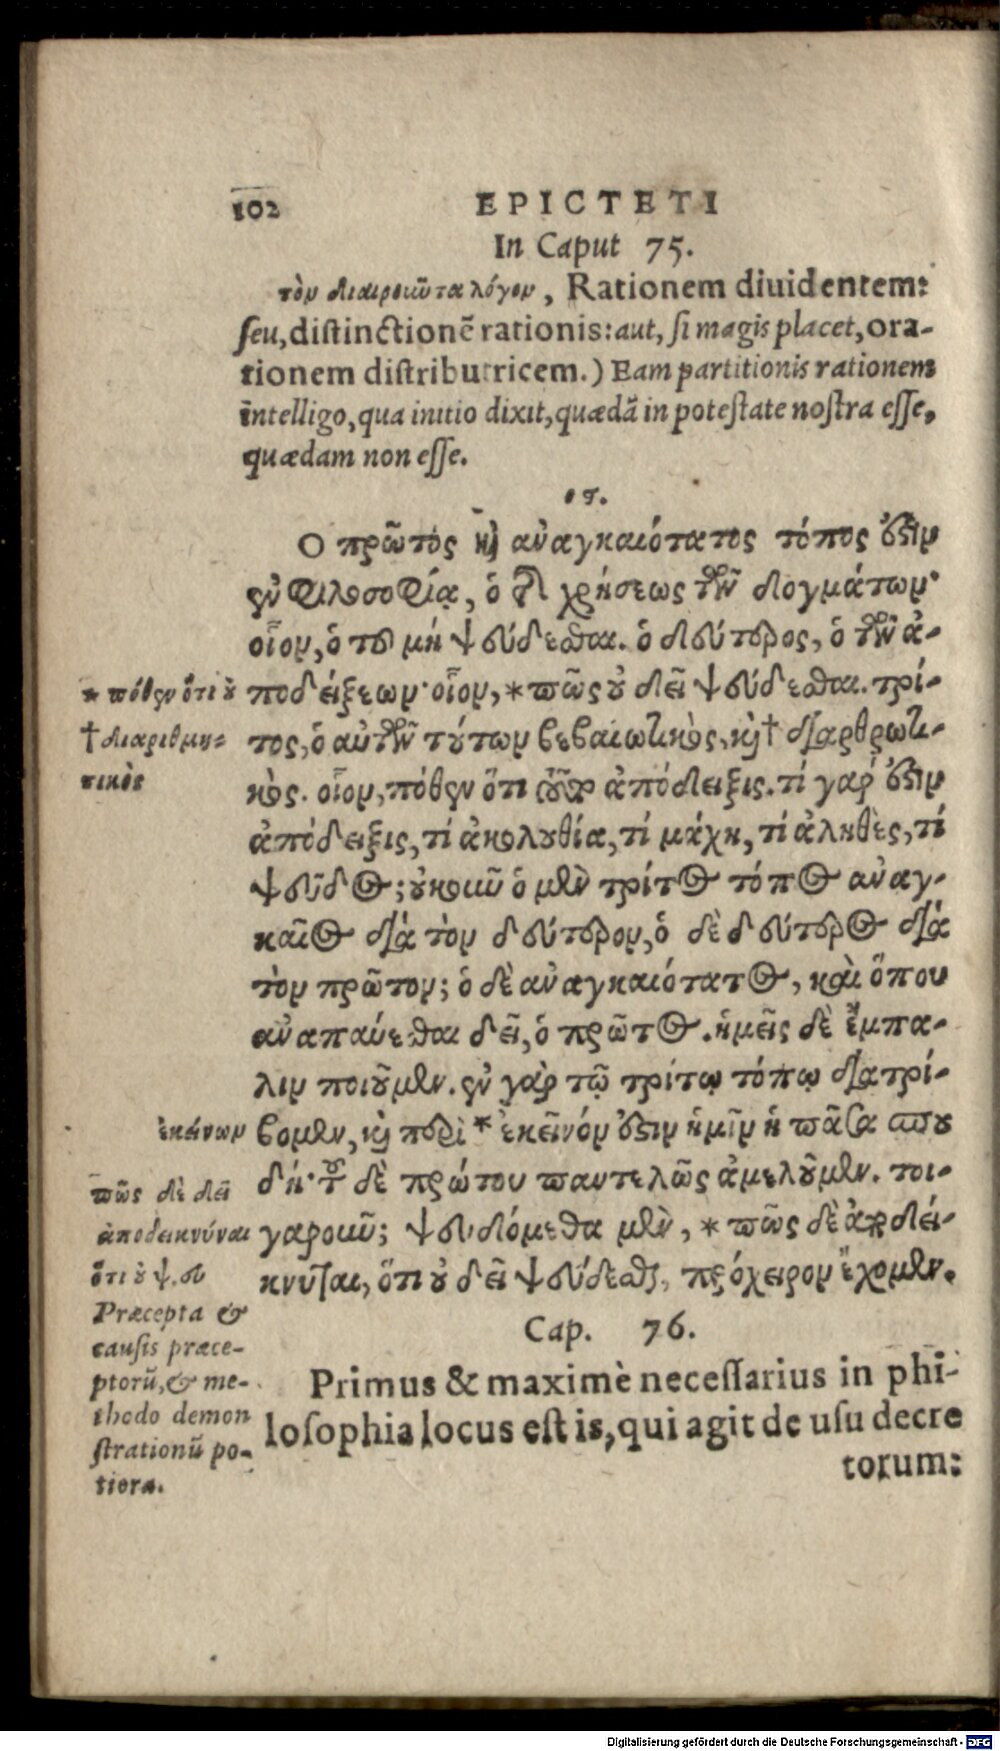 102 EPICTETI
In Caput 75.
τὸν διαιροῦντα λόγον, Rationem diuidentem:
ſeu, diſtinctionẽ rationis: aut, ſi magis placet, ora-
tionem diſtributricem.) Eam partitionis rationem
intelligo, qua initio dixit, quædã in poteſtate noſtra eſſe,
quædam non eſſe.
οϛ.
Ο πρῶτος καὶ ἀναγκαιότατος τόπος ἐστὶν
ἐν Φιλοσοφίᾳ, ὁ τῆς χρήσεως τῶν δογμάτων·
οἷον, ὁ τοῦ μὴ ψεύδεσθαι. ὁ δεύτερος, ὁ τῶν ἀ-
* πόθεν ὅτι οὐ
ποδείξεων· οἷον, * πῶς οὐ δεῖ ψεύδεσθαι. τρί-
† διαριθμη-
τικὸς
τος, ὁ αὐτῶν τούτων βεβαιωτικὸς, καὶ † διαρθρωτι-
κός. οἷον, πόθεν ὅτι τοῦτο ἀπόδειξις. τί γάρ ἐστιν
ἀπόδειξις, τί ἀκολουθία, τί μάχη, τί ἀληθὲς, τί
ψεῦδος; οὐκοῦν ὁ μὲν τρίτος τόπος ἀναγ-
καῖος διὰ τὸν δεύτερον, ὁ δὲ δεύτερος διὰ
τὸν πρῶτον; ὁ δὲ ἀναγκαιότατος, καὶ ὅπου
ἀναπαύεσθαι δεῖ, ὁ πρῶτος. ἡμεῖς δὲ ἔμπα-
λιν ποιοῦμεν. ἐν γὰρ τῷ τρίτῳ τόπῳ διατρί-
ἐκείνων
βομεν, καὶ περὶ * ἐκεῖνόν ἐστιν ἡμῖν ἡ πᾶσα σπου
δή· τοῦ δὲ πρώτου παντελῶς ἀμελοῦμεν. τοι-
πῶς δὲ δεῖ
ἀποδεικνύναι
ὅτι οὐ ψ.ευ
γαροῦν; ψευδόμεθα μὲν, * πῶς δὲ ἀποδεί-
κνυται, ὅτι οὐ δεῖ ψεύδεσθαι, πρόχειρον ἔχομεν.
Præcepta &
cauſis præce-
ptorũ, & me-
thodo demon
ſtrationũ po-
tiora.
Cap. 76.
Primus & maximè neceſſarius in phi-
loſophia locus eſt is, qui agit de uſu decre
torum:
Digitalisierung gefördert durch die Deutsche Forschungsgemeinschaft - DFG